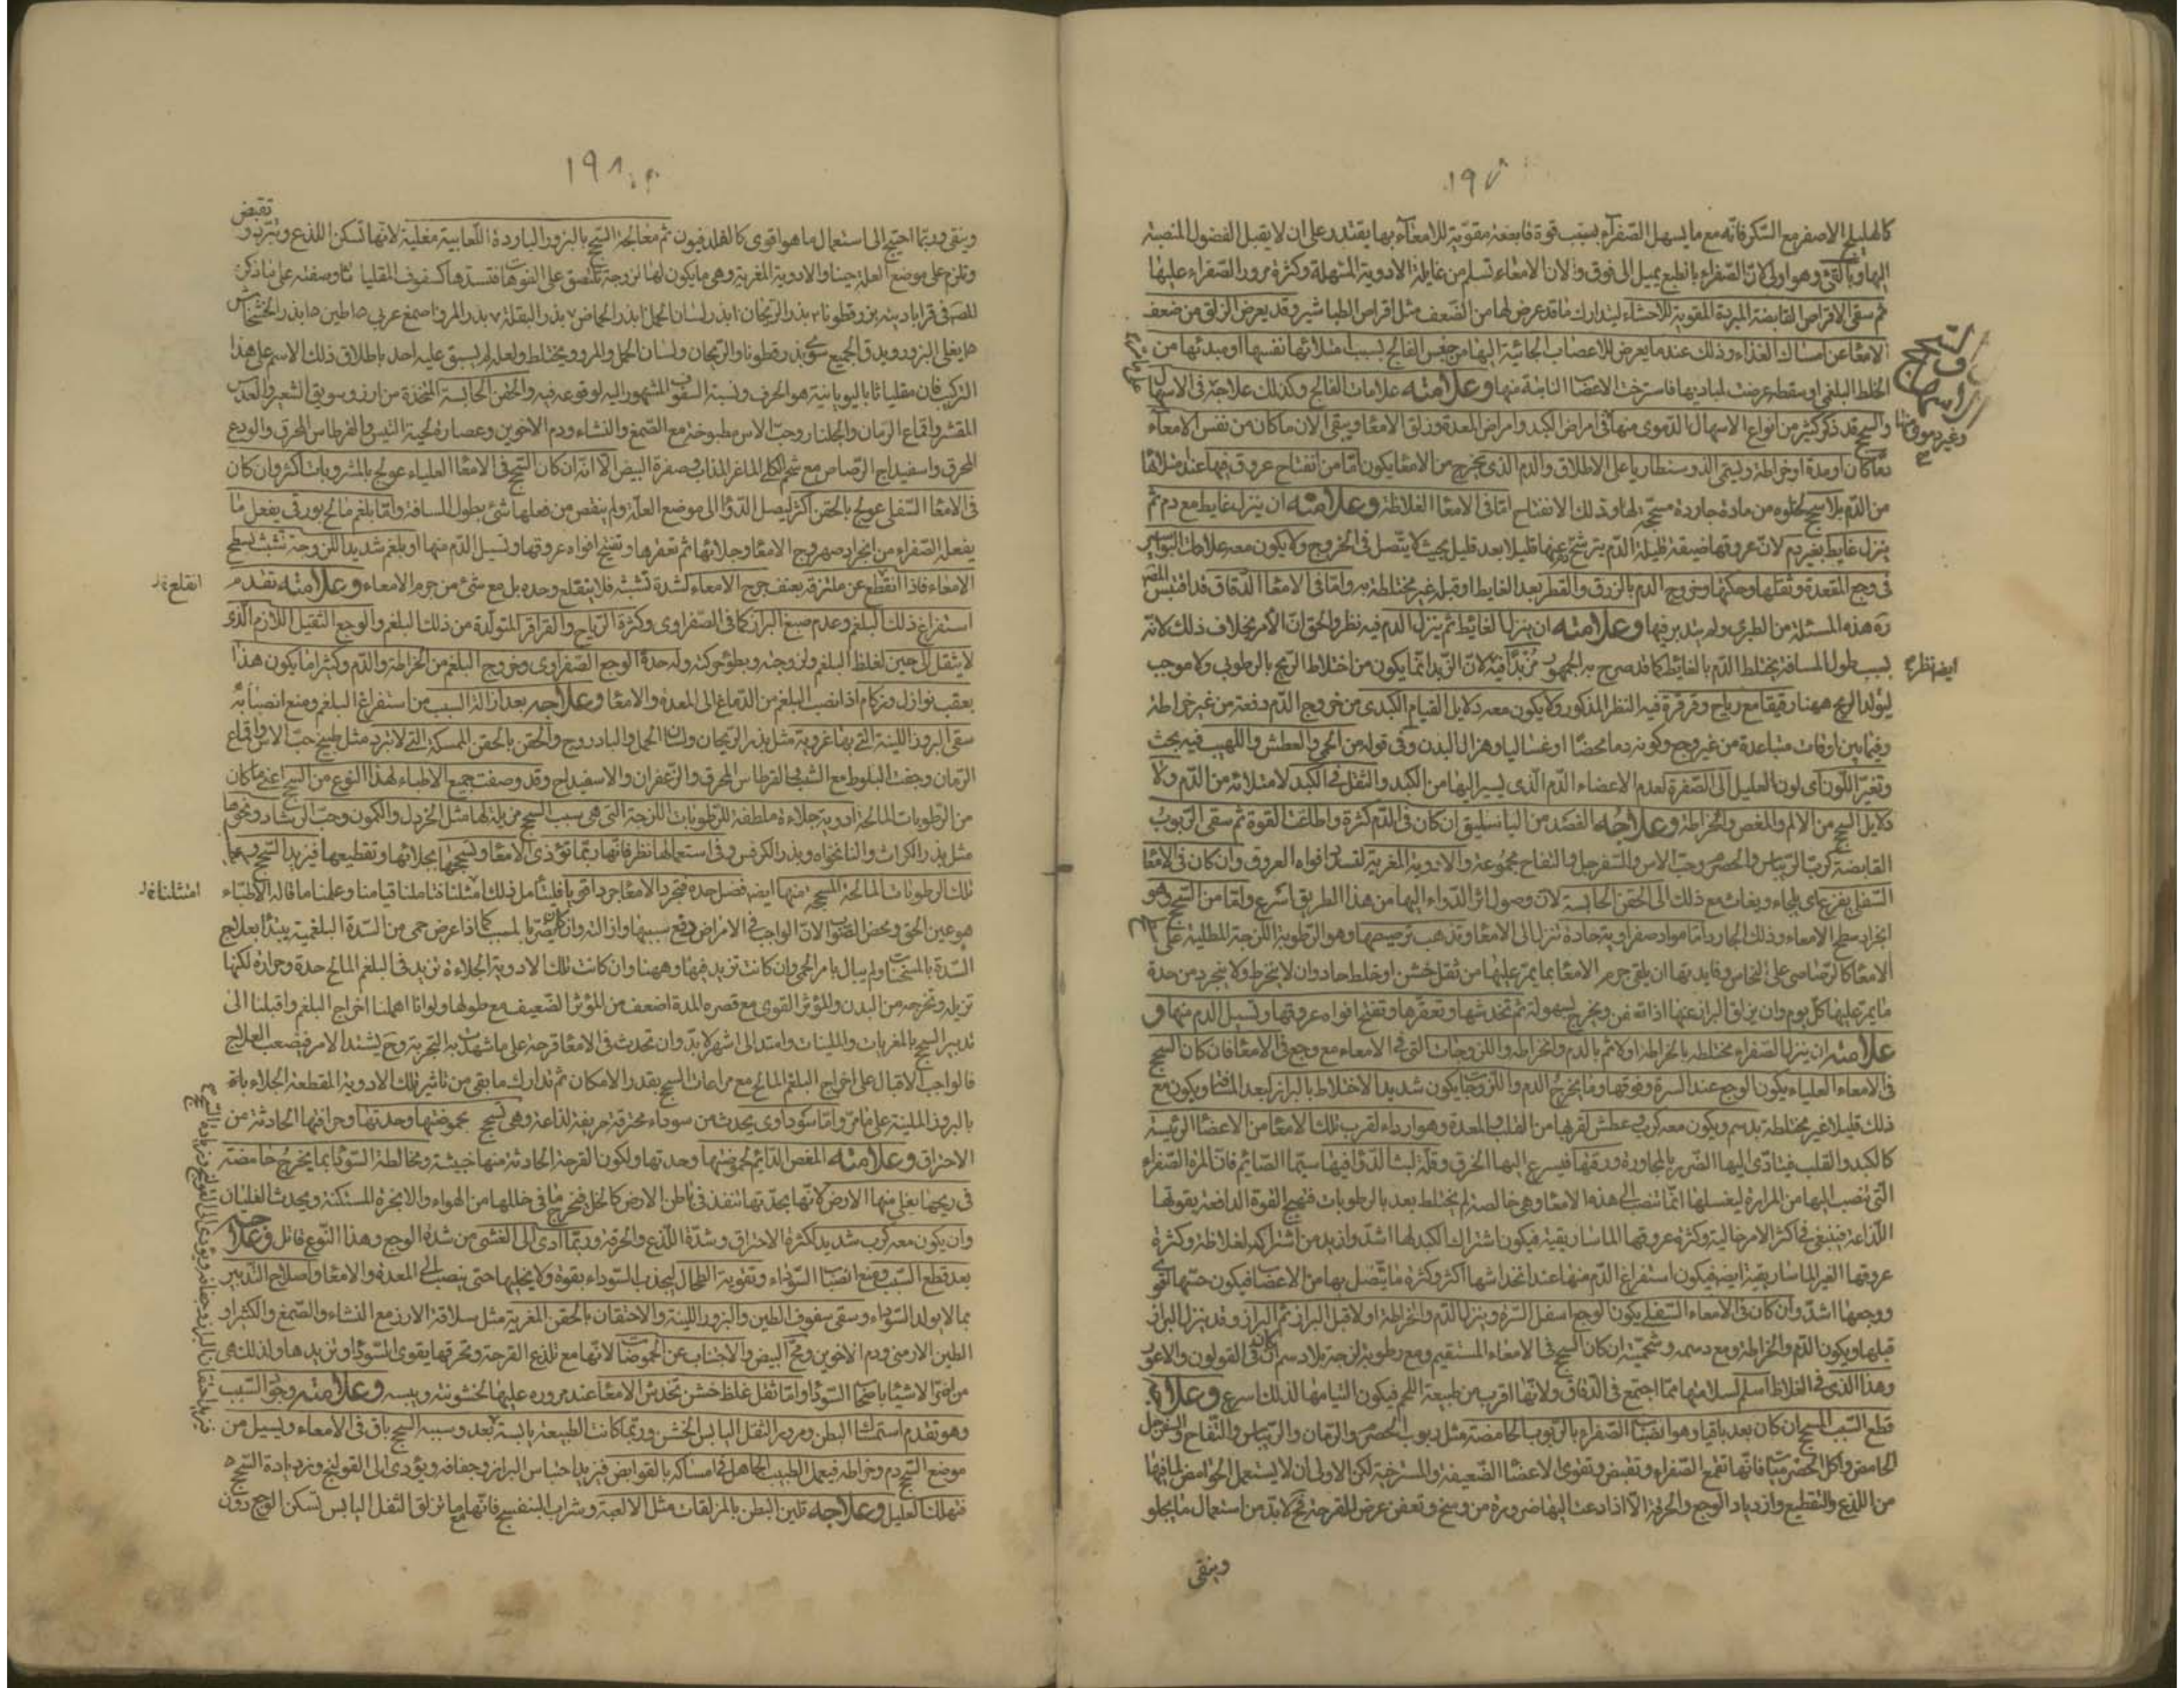 ١٩٧
كالهليلج الاصفر مع السكر فانه مع ما يسهل الصفراء بسبب قوة قابضة مقوية للامعاء بها يقتدر على ان لا يقبل الفضول المنصبة
اليها وبالقئ وهو اولى لان الصفراء بالطبع يميل الى فوق ولان الامعاء تسلم من غايلة الادوية المسهلة وكثرة مرور الصفراء عليها
ثم سقى الاقراص القابضة المبردة المقوية للاحشاء ليتدارك ما قد عرض لها من الضعف مثل اقراص الطباشير وقد يعرض الزلق من ضعف
الامعاء عن امساك الغذاء وذلك عندما يعرض للاعصاب الجائية اليها من جنس الفالج بسبب امتلائها نفسها او مبدئها من
الخلط البلغمى او سقطة عرضت لمباديها فاسترخت الاعضا النابتة منها وعلامته علامات الفالج وكذلك علاجه فى الاسهال
والسحج قد ذكر كثير من انواع الاسهال الدموى منها فى امراض الكبد وامراض المعدة وزلق الامعا وبقى الان ما كان من نفس الامعاء
دما كان او مدة او خراطة ويسمى الذوسنطاريا على الاطلاق والدم الذى يخرج من الامعا يكون اما من انفتاح عروق فيها عند امتلائها
من الدم بلا سحج لخلوه من مادة جاردة مسحجة لها وذلك الانفتاح اما فى الامعا الغلاظ وعلامته ان ينزل غايط مع دم ثم
ينزل غايط بغير دم لان عروقها ضيقة قليلة الدم يترشح عنها قليلا بعد قليل بحيث لا يتصل فى الخروج ولا يكون معه علامات البواسير
فى وجع المقعدة وثقلها وحكتها وخروج الدم بالزرق والقطر بعد الغايط او قبله غير مختلطة به واما فى الامعا الدقاق قد اقتبس المص
ره هذه المسئلة من الطبرى ولم يتدبر فيها وعلامته ان ينزل الغائط ثم ينزل الدم فيه نظر والحق ان الامر بخلاف ذلك لانه
بسبب طول المسافة يختلط الدم بالغائط كما قد صرح به الجمهور مزبدا فيه لان الزبد انما يكون من اختلاط الريح بالرطوبى ولا موجب
ليولد الريح ههنا رقيقا مع رياح وقرقرة فيه النظر المذكور ولا يكون معه دلايل القيام الكبدى من خروج الدم دفعة من غير خراطة
وفيما بين اوقات متباعدة من غير وجع وكونه دما محضا او غساليا وهزال البدن وفى قوله من الحمى والعطش واللهيب فيه بحث
وتغير اللون اى لون العليل الى الصفرة لعدم الاعضاء الدم الذى يسير اليها من الكبد والثقل فى الكبد لامتلائه من الدم ولا
دلايل السحج من الالم والمغص والخراطة وعلاجه الفصد من الباسليق ان كان فى الدم كثرة واطاقت القوة ثم سقى الربوب
القابضة كرب الريباس والحصرم وحب الاس والسفرجل والتفاح مجموعة والادوية المغرية لتسد افواه العروق وان كان فى الامعا
السفلى يفزع اى يلجاء ويغاث مع ذلك الى الحقن الحابسة لان وصول اثر الدواء اليها من هذا الطريق اسرع واما من السحج وهو
انجراد سطح الامعاء وذلك الجارد اما مواد صفراوية حادة تنزل الى الامعا وتذهب ترصيصها وهو الرطوبة اللزجة المطلية على
الامعا كالرصاصى على النحاس وفايدتها ان يلقى جرم الامعا بما يمر عليها من ثفل خشن او خلط حاد وان لا ينخرط ولا ينجرد من حدة
ما يمر عليها كل يوم وان يزلق البراز عنها اذا اته فن ويخرج بسهولة ثم تخدشها وتعقرها وتفتح افواه عروقها وتسيل الدم منها و
علامته ان ينزل الصفراء مختلطة بالخراطة اولا ثم بالدم والخراطة واللزوجات التى فى الامعاء مع وجع فى الامعا فان كان السحج
فى الامعاء العلياء يكون الوجع عند السرة وفوقها وما يخرج الدم واللزوجا يكون شديد الاختلاط بالبراز لبعد المسافة ويكون مع
ذلك قليلا غير مختلطة بدسم ويكون معه كرب وعطش لقربها من القلب والمعدة وهو ارداء لقرب تلك الامعا من الاعضا الرئيسة
كالكبد والقلب فيتادى اليها الضرر بالمجاورة ورقتها فيسرع اليها الخرق وقلة لبث الدوا فيها سيما الصائم فان المرة الصفراء
التى تنصب اليها من المرارة ليغسلها انما تنصب الى هذه الامعا وهى خالصة لم يختلط بعد بالرطوبات فتهيج القوة الدافعة بقوتها
اللذاعة فيبقى فى اكثر الامر خالية وكثرة عروقها الماساريقية فيكون اشتراك الكبد لها اشد وازيد من اشتراكها لغلاظ وكثرة
عروقها الغير الماساريقية ايضا فيكون استفراغ الدم منها عند انخداشها اكثر وكثرة ما يتصل بها من الاعضا فيكون حسها اقوى
ووجعها اشد وان كان فى الامعاء السفلى يكون الوجع اسفل السرة وينزل الدم والخراطة اولا قبل البراز ثم البراز وقد ينزل البراز
قبلها ويكون الدم والخراطة مع دسم وشحمية ان كان السحج فى الامعاء المستقيم ومع رطوبة لزجة بلا دسم ان كان فى القولون والاعور
وهذا الذى فى الغلاظ اسلم لسلامتها مما اجتمع فى الدقاق ولانها اقرب من طبيعة اللحم فيكون التيامها لذلك اسرع وعلاجه
قطع السبب المسحج ان كان بعد باقيا وهو انصباب الصفراء بالربوب الحامضة مثل ربوب الحصرم والرمان والريباس والتفاح والسفرجل
الحامض واكل الحصرميا فانها تقمع الصفراء وتقبض وتقوى الاعضا الضعيفة والمسترخية لكن الاولى ان لا يستعمل الحوامض لما فيها
من اللذع والتقطيع وازدياد الوجع والحرقة الا اذا دعت اليها ضرورة من وسخ وتعفن عرض للقرحة فح لا بد من استعمال ما يجلو
وينقى
السحج
وغيره
ايضا نظر
١٩٨
تقبض
وينقى وربما احتيج الى استعمال ما هو اقوى كالفلدفيون ثم معالجة السحج بالبزور الباردة اللعابية مغلية لانها تسكن اللذع وتبرد و
وتلزم على موضع العلة حينا والادوية المغرية وهى ما يكون لها لزوجة تلتصق على الفوهات فتسدها كسفوف المقلياثا وصفته على ما ذكره
المص فى قراباديه بزر قطونا بذر الريحان بذر لسان الحمل بذر الحماض بذر البقلة بذر المرو صمغ عربى طين بذر الخشخاش
يغلى البزور ويدق الجميع سوى بذر قطونا والريحان ولسان الحمل والمرو ويختلط ولعله لم يسبق عليه احد باطلاق ذلك الاسم على هذا
التركيب فان مقلياثا باليونانية هو الحرف ونسبة السفوف المشهور اليه لوقوعه فيه والحقن الحابسة المتخذة من ارز وسويق الشعير والعدس
المقشر واقماع الرمان والجلنار وحب الاس مطبوخة مع الصمغ والنشاء ودم الاخوين وعصارة لحية التيس والقرطاس المحرق والودع
المحرق واسفيداج الرصاص مع شحم كلى الماعز المذاب وصفرة البيض الا انه ان كان السحج فى الامعا العلياء عولج بالمشروبات اكثر وان كان
فى الامعا السفلى عولج بالحقن اكثر ليصل الدوا الى موضع العلة ولم ينقص من فعلها شئ بطول المسافة واما بلغم مالح بورقى يفعل ما
يفعله الصفراء من انجراد صهروج الامعا وجلائها ثم تعقرها وتفتح افواه عروقها وتسيل الدم منها او بلغم شديد اللزوجة تشبث بسطح
الامعاء فاذا انقطع عن ملتزقه بعنف جرح الامعاء لشدة تشبثه فلا ينقلع وحده بل مع شئ من جرم الامعاء وعلامته تقدم
استفراغ ذلك البلغم وعدم صبغ البراز كما فى الصفراوى وكثرة الرياح والقراقر المتولدة من ذلك البلغم والوجع الثقيل اللازم الذى
لا ينتقل الى حين لغلظ البلغم ولزوجته وبطؤ حركته ولحدة الوجع الصفراوى وخروج البلغم من الخراطة والدم وكثيرا ما يكون هذا
بعقب نوازل وزكام اذا نصب البلغم من الدماغ الى المعدة والامعا وعلاجه بعد ازالة السبب من استفراغ البلغم ومنع انصبابه
سقى البزور اللينة التى بها غروية مثل بذر الريحان ولسان الحمل والبادروج والحقن بالحقن الممسكة التى لا تبرد مثل طبيخ حب الاس واقماع
الرمان وجفت البلوط مع الشب والقرطاس المحرق والزعفران والاسفيداج وقد وصفت جميع الاطباء لهذا النوع من السحج اعنى ما كان
من الرطوبات المالحة ادوية جلاءة ملطفة للرطوبات اللزجة التى هى سبب السحج مزيلة لها مثل الخردل والكمون وحب الرشاد ونحوها
مثل بذر الكراث والنانخواه وبذر الكرفس وفى استعمالها نظر فانها ربما تؤذى الامعا وتسحجها بجلائها وتقطيعها فيزيد السحج وبما
تلك الرطوبات المالحة المسحجة منها ايضا فضل حدة فتجرد الامعا جردا قويا فليتامل ذلك امتثلنا فتاملنا قيامنا وعلمنا ما قاله الاطباء
هو عين الحق ومحض الصواب لان الواجب فى الامراض دفع سببها وازالته وان كان يضر بالمسبب كما اذا عرض حمى من السدة البلغمية يبتدأ بعلاج
السدة بالمسخنات ولم يبال بامر الحمى وان كانت تزيد فيها وههنا وان كانت تلك الادوية الجلاءة تزيد فى البلغم المالح حدة وحرارة لكنها
تزيله وتخرجه من البدن والمؤثر القوى مع قصره المدة اضعف من المؤثر الضعيف مع طولها ولو انا اهملنا اخراج البلغم واقبلنا الى
تدبير السحج بالمغريات والملينات وامتد الى اشهر لا بد وان تحدث فى الامعا قرحة على ما شهدت به التجربة وح يشتد الامر فيصعب العلاج
فالواجب الاقبال على اخراج البلغم المالح مع مراعات السحج بقدر الامكان ثم تدارك ما بقى من تاثير تلك الادوية المقطعة الجلاءة باقة
بالبزور الملينة على ما مر واما سوداوى يحدث من سوداء محترقة حريفة لذاعة وهى تسحج بحموضتها وحدتها وحرافتها الحادثة من
الاحتراق وعلامته المغص الدايم لحموضتها وحدتها ولكون القرحة الحادثة منها خبيثة ومخالطة السوداء بما يخرج حامضة
فى ريحها يغلى منها الارض لانها بحدتها تنفذ فى باطن الارض كالخل فتخرج ما فى خللها من الهواء والابخرة المستكنة ويحدث الغليان
وان يكون معه كرب شديد لكثرة الاحتراق وشدة اللذع والحرقة وربما ادى الى الغشى من شدة الوجع وهذا النوع قاتل وعلاجه
بعد قطع السبب ومنع انصباب السوداء وتقوية الطحال ليجذب السوداء بقوة ولا يخليها حتى ينصب الى المعدة والامعا واصلاح التدبير
بما لا يولد السوداء وسقى سفوف الطين والبزور اللينة والاحتقان بالحقن المغرية مثل سلاقة الارز مع النشاء والصمغ والكثيراء
الطين الارمنى ودم الاخوين ومح البيض والاجتناب عن الحموضات لانها مع تلذع القرحة وتحرقها يقوى السوداء وتزيدها ولذلك هى
من اضر الاشياء باصحاب السوداء واما ثفل غليظ خشن تخدش الامعا عند مروره عليها لخشونته ويبسه وعلامته وجود السبب
وهو تقدم استمساك البطن ومرور الثفل اليابس الخشن وربما كانت الطبيعة يابسة بعد وسببه السحج باق فى الامعاء ويسيل من
موضع السحج دم وخراطة فيعمل الطبيب الجاهل فى امساكه بالقوابض فيزيد احتباس البراز وجفافه ويؤدى الى القولنج وزيادة السحج
فتهلك العليل وعلاجه تليين البطن بالمزلقات مثل الالعبة وشراب البنفسج فانها مع ما تزلق الثفل اليابس تسكن الوجع دون
انقلع
امتثلنا
فيزيد احتقان البراز وجفافه ويؤدى الى القولنج وزيادة السحج